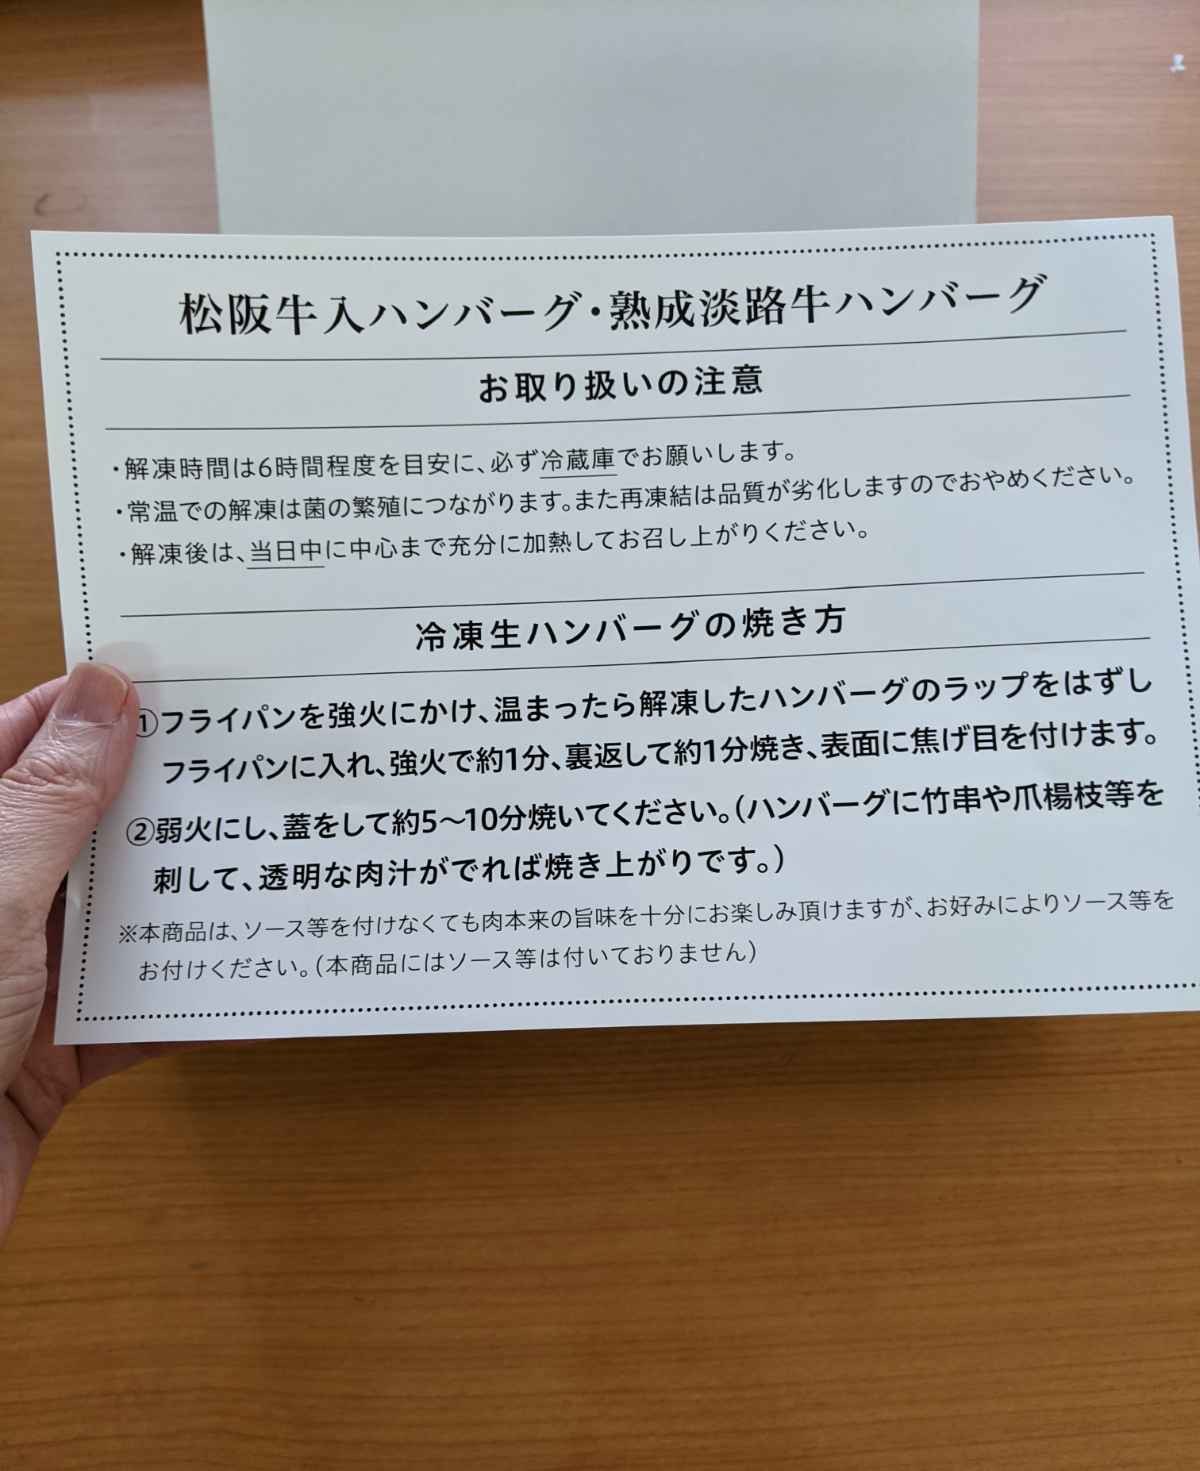 松阪牛入ハンバーグ・熟成淡路牛ハンバーグ
お取り扱いの注意
・解凍時間は6時間程度を目安に、必ず冷蔵庫でお願いします。
・常温での解凍は菌の繁殖につながります。また再凍結は品質が劣化しますのでおやめください。
・解凍後は、当日中に中心まで充分に加熱してお召し上がりください。
冷凍生ハンバーグの焼き方
①フライパンを強火にかけ、温まったら解凍したハンバーグのラップをはずし
フライパンに入れ、強火で約1分、裏返して約1分焼き、表面に焦げ目を付けます。
②弱火にし、蓋をして約5〜10分焼いてください。(ハンバーグに竹串や爪楊枝等を
刺して、透明な肉汁がでれば焼き上がりです。)
※本商品は、ソース等を付けなくても肉本来の旨味を十分にお楽しみ頂けますが、お好みによりソース等を
お付けください。(本商品にはソース等は付いておりません)